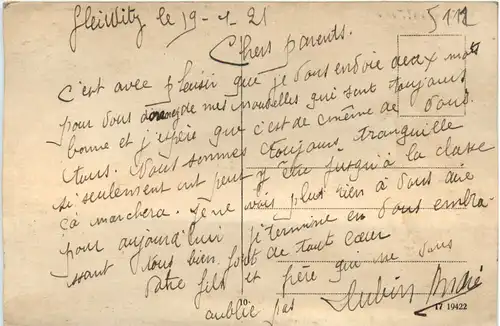 Gleiwitz le 19-1-21
5112
Chers parents.
C'est avec plaisir que je vous envoie deux mots
pour vous donner de mes nouvelles qui sont toujours
bonne et j'espère que c'est de même de vous
tous. Nous sommes toujours tranquille
si seulement ont peut y être jusqu'à la classe
çà marchera. Je ne vois plus rien à vous dire
pour aujourd'hui je termine en vous embra-
ssant tous bien fort de tout cœur
Votre fils et frère qui ne vous
oublie pas
Aubin André
17 19422